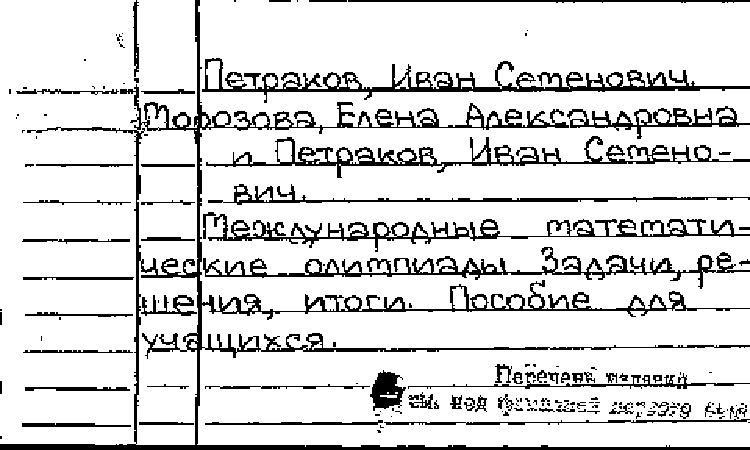 Петраков, Иван Семенович.
Морозова, Елена Александровна
и Петраков, Иван Семено-
вич.
Международные математи-
ческие олимпиады. Задачи, ре-
шения, итоги. Пособие для
учащихся.
Перечень изданий
см. под фамилией первого